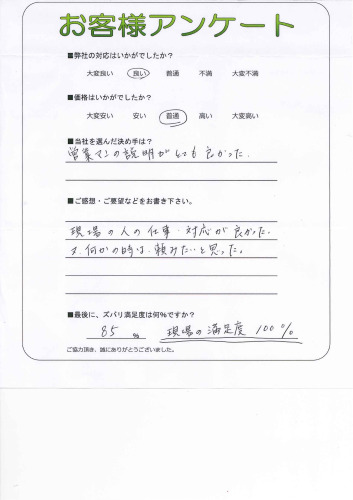 お客様アンケート
■弊社の対応はいかがでしたか？
大変良い 良い 普通 不満 大変不満
■価格はいかがでしたか？
大変安い 安い 普通 高い 大変高い
■当社を選んだ決め手は？
営業マンの説明がとても良かった.
■ご感想・ご要望などをお書き下さい。
現場の人の仕事・対応が良かった.
又、何かの時は、頼みたいと思った。
■最後に、ズバリ満足度は何％ですか？
85 % 現場の満足度 100%
ご協力頂き、誠にありがとうございました。